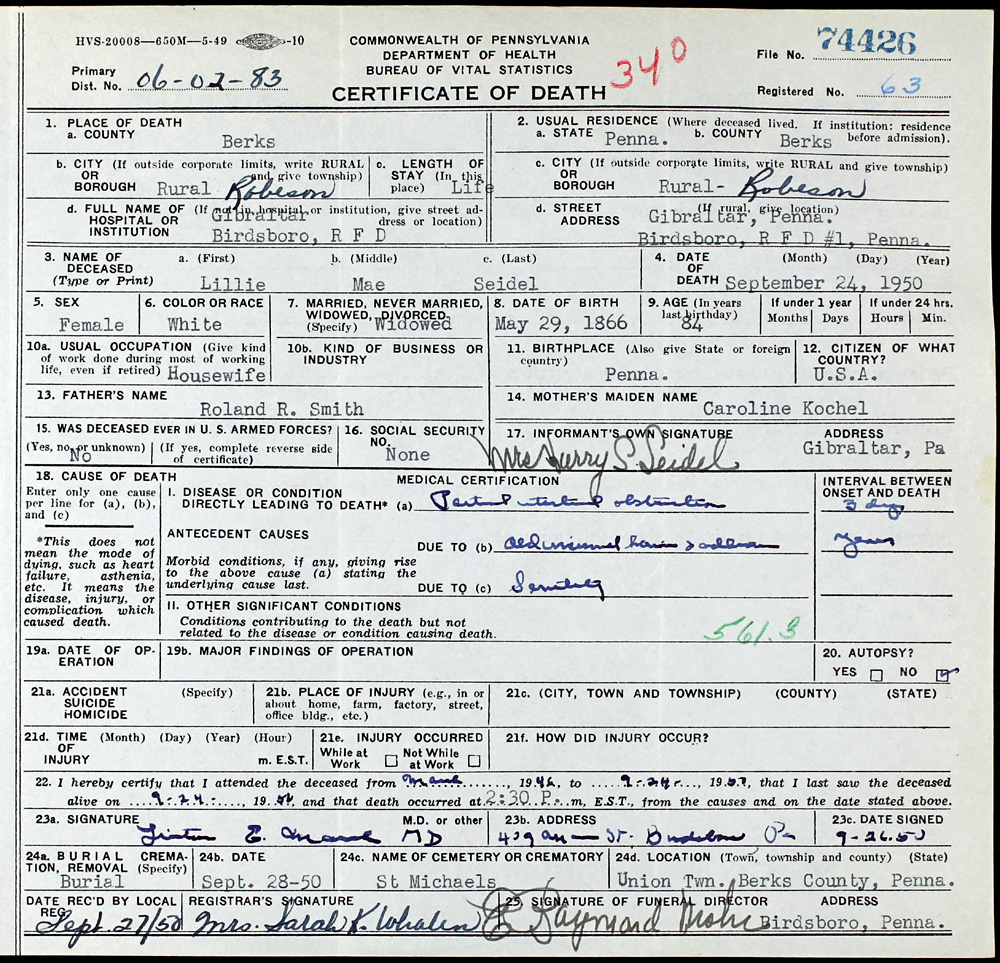 HVS-20008—650M—5-49 -10
COMMONWEALTH OF PENNSYLVANIA
DEPARTMENT OF HEALTH
BUREAU OF VITAL STATISTICS
CERTIFICATE OF DEATH
340
File No. 74426
Primary
Dist. No. 06-02-83
Registered No. 63
1. PLACE OF DEATH
a. COUNTY
Berks
2. USUAL RESIDENCE (Where deceased lived. If institution: residence
a. STATE Penna. b. COUNTY Berks before admission).
b. CITY (If outside corporate limits, write RURAL
OR and give township)
BOROUGH Rural Robeson
c. LENGTH OF
STAY (In this
place) Life
c. CITY (If outside corporate limits, write RURAL and give township)
OR
BOROUGH Rural- Robeson
d. FULL NAME OF (If not in hospital or institution, give street ad-
HOSPITAL OR Gibraltar dress or location)
INSTITUTION Birdsboro, R F D
d. STREET (If rural, give location)
ADDRESS Gibraltar, Penna.
Birdsboro, R F D #1, Penna.
3. NAME OF a. (First) b. (Middle) c. (Last)
DECEASED
(Type or Print) Lillie Mae Seidel
4. DATE (Month) (Day) (Year)
OF
DEATH September 24, 1950
5. SEX
Female
6. COLOR OR RACE
White
7. MARRIED, NEVER MARRIED,
WIDOWED, DIVORCED
(Specify) Widowed
8. DATE OF BIRTH
May 29, 1866
9. AGE (In years
last birthday)
84
If under 1 year
Months Days
If under 24 hrs.
Hours Min.
10a. USUAL OCCUPATION (Give kind
of work done during most of working
life, even if retired) Housewife
10b. KIND OF BUSINESS OR
INDUSTRY
11. BIRTHPLACE (Also give State or foreign
country)
Penna.
12. CITIZEN OF WHAT
COUNTRY?
U.S.A.
13. FATHER'S NAME
Roland R. Smith
14. MOTHER'S MAIDEN NAME
Caroline Kochel
15. WAS DECEASED EVER IN U. S. ARMED FORCES?
(Yes, no, or unknown) (If yes, complete reverse side
No of certificate)
16. SOCIAL SECURITY
NO.
None
17. INFORMANT'S OWN SIGNATURE ADDRESS
Mrs Harry S. Seidel Gibraltar, Pa
18. CAUSE OF DEATH
Enter only one cause
per line for (a), (b),
and (c)
*This does not
mean the mode of
dying, such as heart
failure, asthenia,
etc. It means the
disease, injury, or
complication which
caused death.
MEDICAL CERTIFICATION
I. DISEASE OR CONDITION
DIRECTLY LEADING TO DEATH* (a) Partial intestinal obstruction
ANTECEDENT CAUSES
DUE TO (b) old hernia
Morbid conditions, if any, giving rise
to the above cause (a) stating the
underlying cause last.
DUE TO (c) Senility
II. OTHER SIGNIFICANT CONDITIONS
Conditions contributing to the death but not
related to the disease or condition causing death.
561.3
INTERVAL BETWEEN
ONSET AND DEATH
3 days
years
19a. DATE OF OP-
ERATION
19b. MAJOR FINDINGS OF OPERATION
20. AUTOPSY?
YES NO
21a. ACCIDENT (Specify)
SUICIDE
HOMICIDE
21b. PLACE OF INJURY (e.g., in or
about home, farm, factory, street,
office bldg., etc.)
21c. (CITY, TOWN AND TOWNSHIP) (COUNTY) (STATE)
21d. TIME (Month) (Day) (Year) (Hour)
OF
INJURY m. E.S.T.
21e. INJURY OCCURRED
While at Not While
Work at Work
21f. HOW DID INJURY OCCUR?
22. I hereby certify that I attended the deceased from , 1946, to 9-24-, 1950, that I last saw the deceased
alive on 9-24-, 1950, and that death occurred at 2:30 P. m, E.S.T., from the causes and on the date stated above.
23a. SIGNATURE M.D. or other
E. MD
23b. ADDRESS
St. Birdsboro Pa
23c. DATE SIGNED
9-26.50
24a. BURIAL CREMA-
TION, REMOVAL (Specify)
Burial
24b. DATE
Sept. 28-50
24c. NAME OF CEMETERY OR CREMATORY
St Michaels
24d. LOCATION (Town, township and county) (State)
Union Twn. Berks County, Penna.
DATE REC'D BY LOCAL
REG.
Sept. 27/50
REGISTRAR'S SIGNATURE
Mrs. Sarah K. Whalen
25. SIGNATURE OF FUNERAL DIRECTOR ADDRESS
E Raymond Birdsboro, Penna.